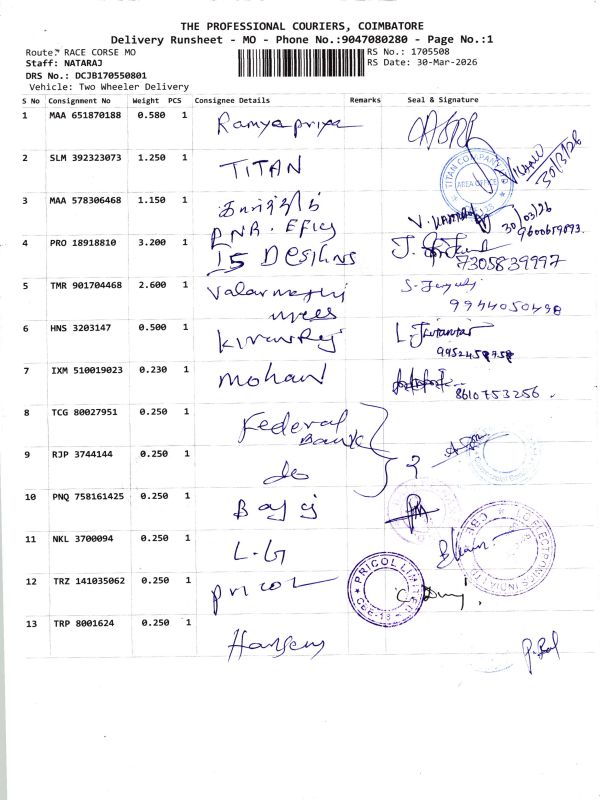 THE PROFESSIONAL COURIERS, COIMBATORE
Delivery Runsheet - MO - Phone No.:9047080280 - Page No.:1
Route: RACE CORSE MO
RS No.: 1705508
Staff: NATARAJ
RS Date: 30-Mar-2026
DRS No.: DCJB170550801
Vehicle: Two Wheeler Delivery
S No Consignment No Weight PCS Consignee Details Remarks Seal & Signature
1 MAA 651870188 0.580 1 Ramyapriya
2 SLM 392323073 1.250 1 TITAN
TITAN COMPANY
AREA OFFICE
30/3/26
3 MAA 578306468 1.150 1
30/03/26
9600659893.
4 PRO 18918810 3.200 1 15 Designs
7305839997
5 TMR 901704468 2.600 1 Valarmathi
9944050498
6 HNS 3203147 0.500 1 Kiranraj
7 IXM 510019023 0.230 1 mohan
8610753256.
8 TCG 80027951 0.250 1 Federal
Bank
9 RJP 3744144 0.250 1 do
10 PNQ 758161425 0.250 1 Bajaj
11 NKL 3700094 0.250 1 L.G
12 TRZ 141035062 0.250 1 pricol
PRICOL LIMITED
CBE-18
13 TRP 8001624 0.250 1